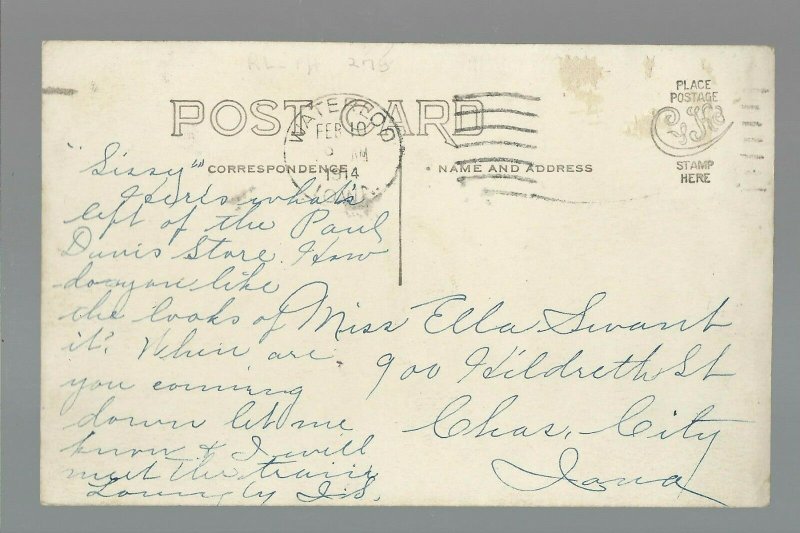 POST CARD
WATERLOO
FEB 10
AM
1914
IOWA
PLACE
POSTAGE
STAMP
HERE
CORRESPONDENCE
NAME AND ADDRESS
"Sissy"
Here's what's
left of the Paul
Davis Store. How
do you like
the looks of
it? When are
you coming
down let me
know & I will
meet the train
Lovingly
Miss Ella Swant
900 Hildreth St
Chas. City
Iowa